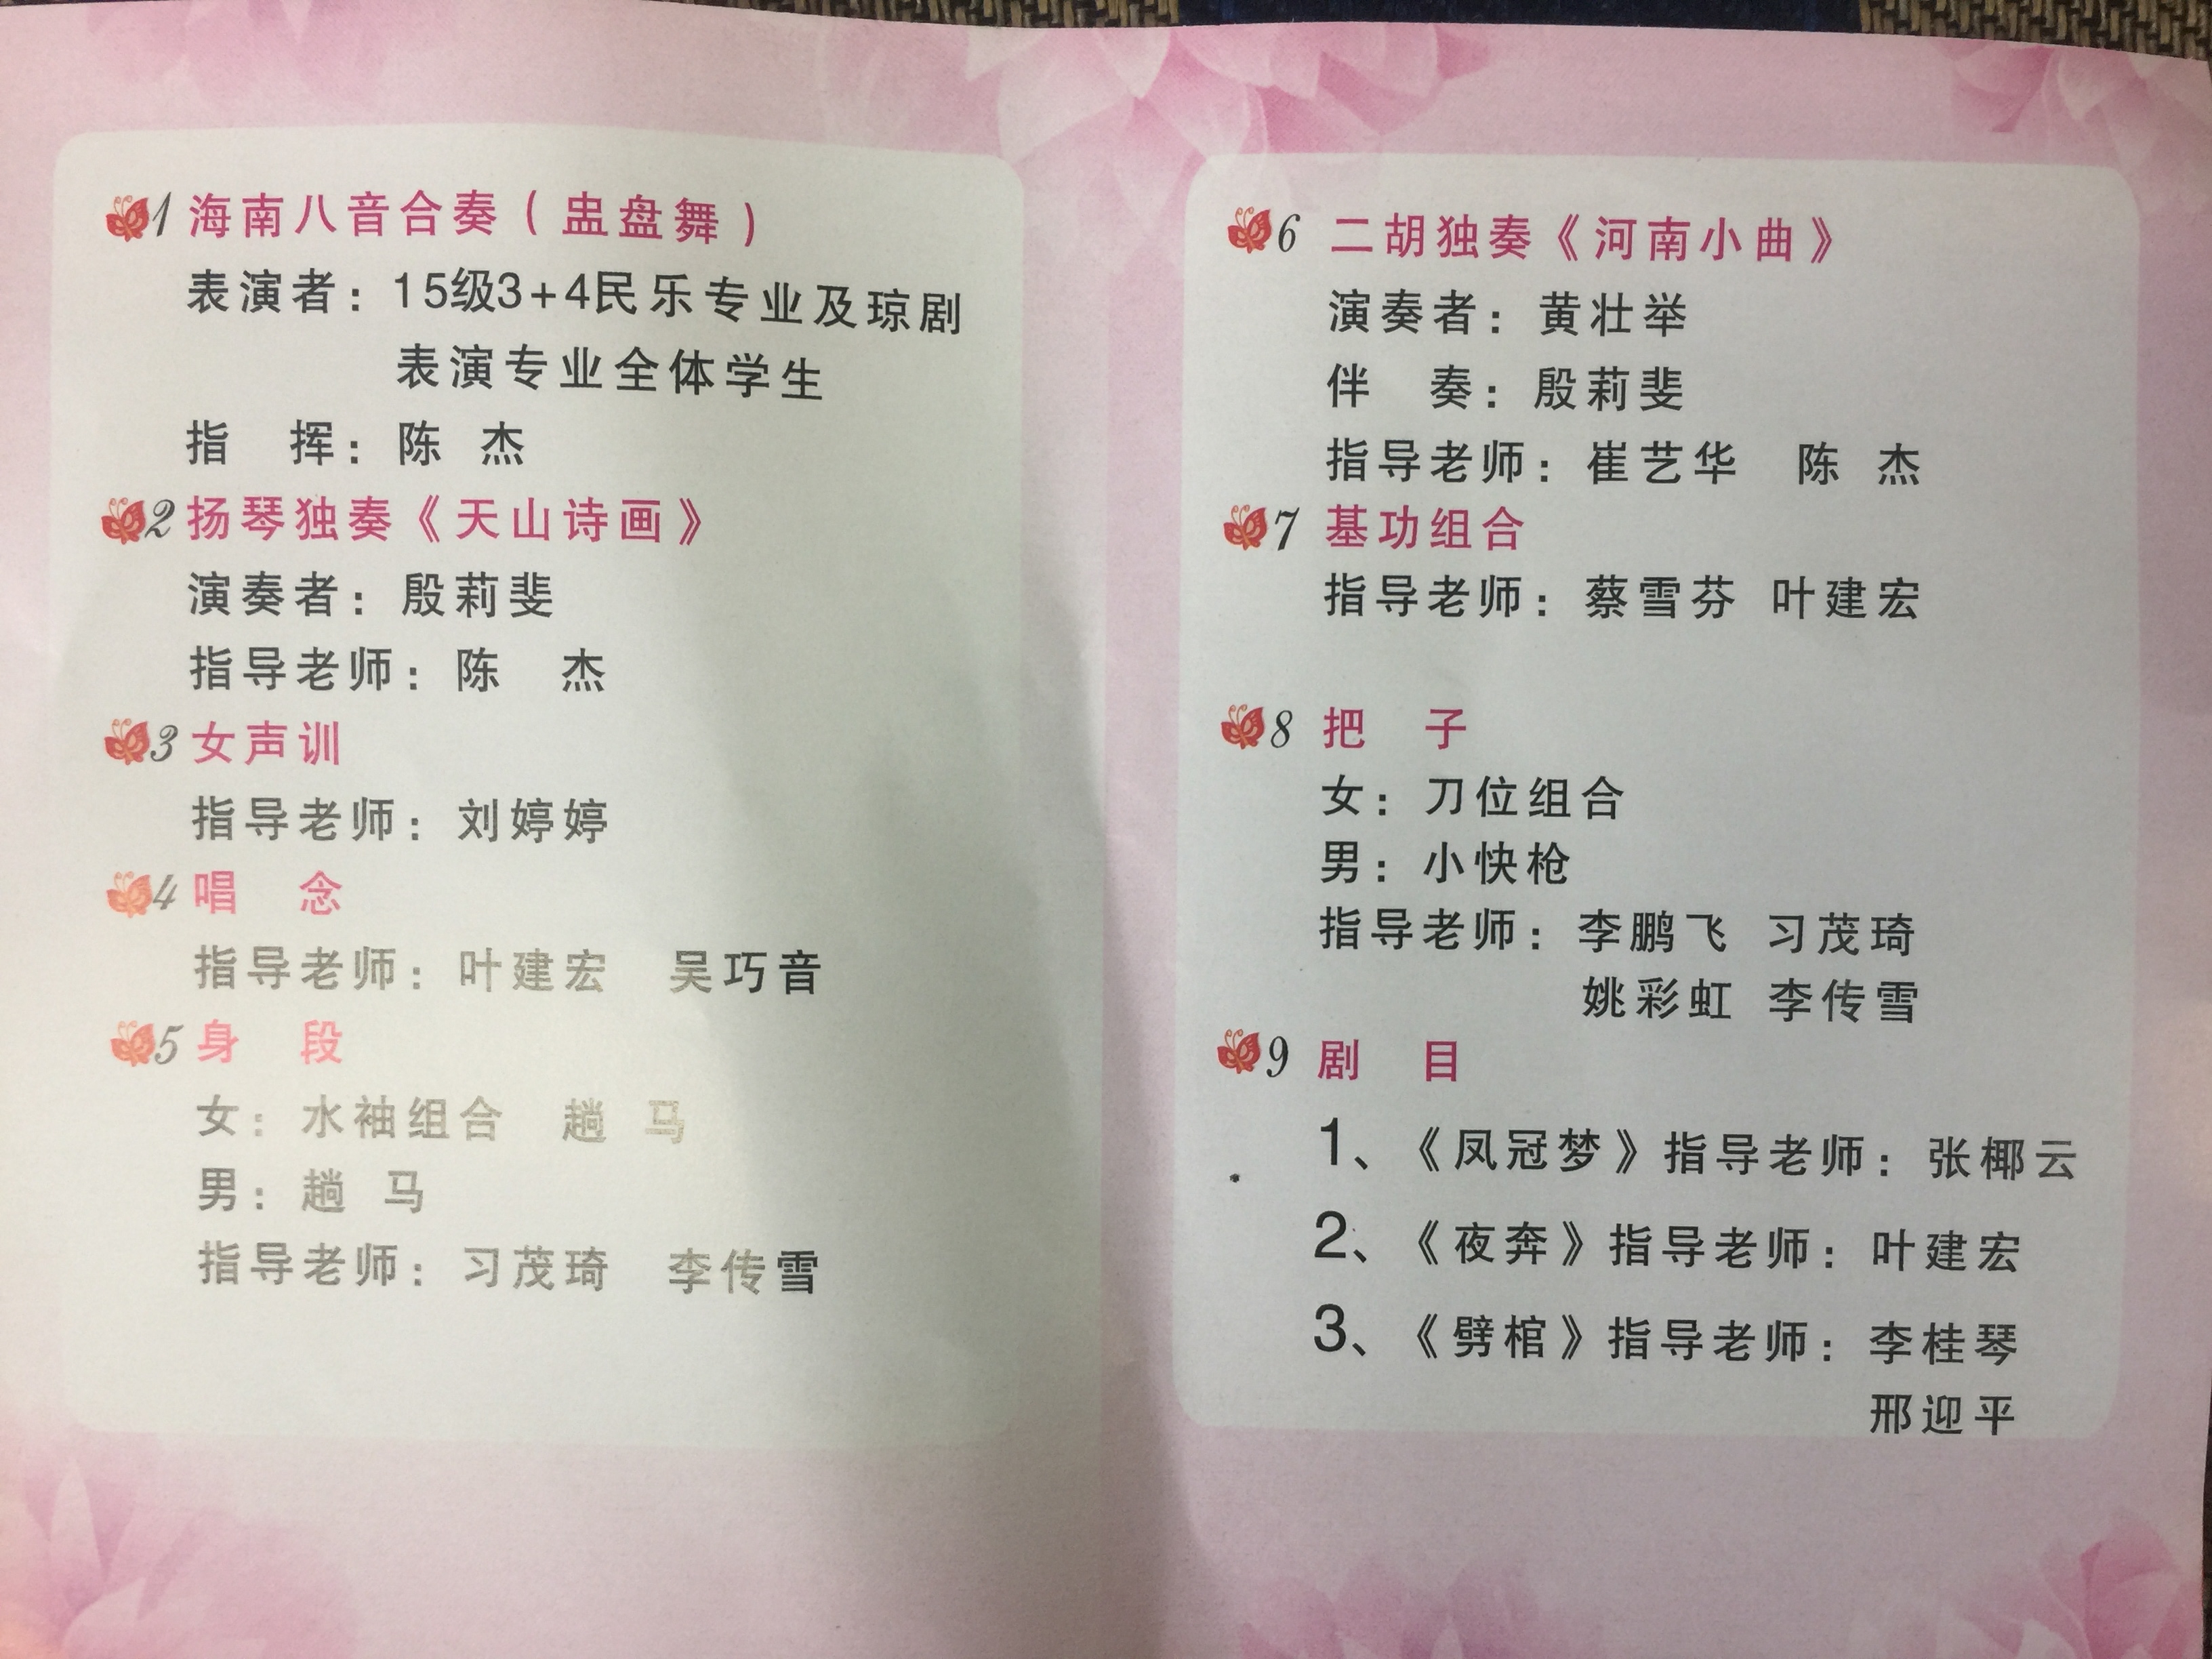 1 海南八音合奏（盅盘舞）
表演者：15级3+4民乐专业及琼剧
表演专业全体学生
指 挥：陈 杰
2 扬琴独奏《天山诗画》
演奏者：殷莉斐
指导老师：陈 杰
3 女声训
指导老师：刘婷婷
4 唱 念
指导老师：叶建宏 吴巧音
5 身 段
女：水袖组合 趟 马
男：趟 马
指导老师：习茂琦 李传雪
6 二胡独奏《河南小曲》
演奏者：黄壮举
伴 奏：殷莉斐
指导老师：崔艺华 陈 杰
7 基功组合
指导老师：蔡雪芬 叶建宏
8 把 子
女：刀位组合
男：小快枪
指导老师：李鹏飞 习茂琦
姚彩虹 李传雪
9 剧 目
1、《凤冠梦》指导老师：张椰云
2、《夜奔》指导老师：叶建宏
3、《劈棺》指导老师：李桂琴
邢迎平